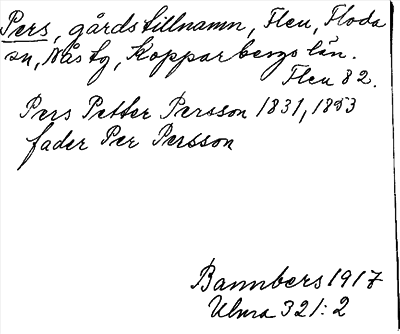 Pers, gårdstillnamn, Flen, Floda
sn, Nås tg, Kopparbergs län.
Flen 82.
Pers Petter Persson 1831, 1853
fader Per Persson
Bannbers 1917
Ulma 321:2